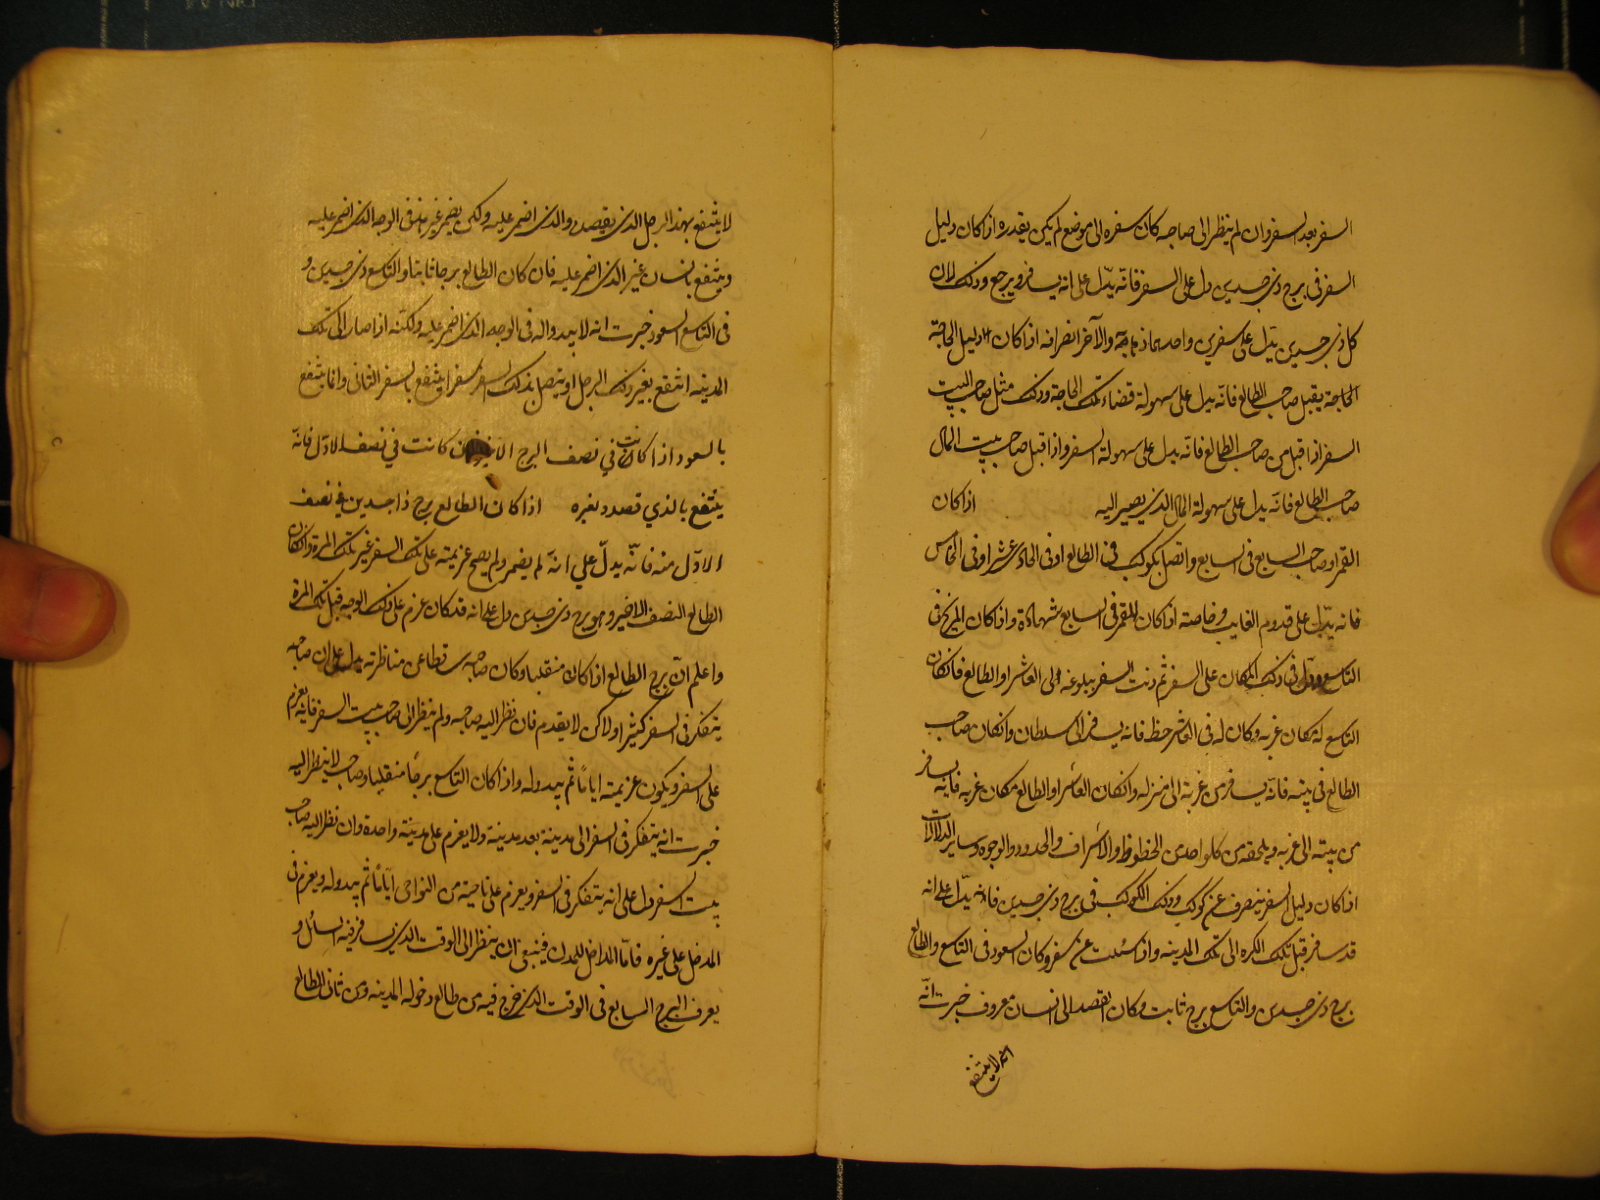 السفر بعد السفر وان لم ينظر الى صاحبه كان سفره الى موضع لم يكن يقدره اذا كان دليل
السفر فى برج ذى جسدين دل على السفر فانّه يدّل على انه يسافر ويرجع وذلك لان
كل ذى جسدين يدّل على سفرين واحدهما ذهابه والآخر انصرافه اذا كان دليل الحاجة
الحاجة يقبل صاحب الطالع فانّه يدل على سهولة قضاء تلك الحاجة وذلك مثل صاحب بيت
السفر اذا قبل من صاحب الطالع فانّه يدل على سهولة السفر واذا قبل صاحب بيت المال
صاحب الطالع فانّه يدل على سهولة المال الذى يصير اليه اذا كان
القمر او صاحب السابع فى السابع واتصل بكوكب فى الطالع او فى الحادى عشر او فى الخامس
فانه يدّل على قدوم الغايب وخاصته اذا كان للقمر فى السابع شهادة واذا كان المريخ فى
التاسع ودل فى ذلك المكان على السفر ثم دنت السفر ببلوغه الى العاشر او الطالع فان كان
التاسع له مكان غربه وكان له فى العاشر حظ فانه يسافر الى سلطان وان كان صاحب
الطالع فى بيته فانّه يسافر من غربة الى منزله وان كان العاشر او الطالع مكان غربه فانه يسافر
من بيته الى غربه ويلحقه من كل واحد من الحظوظ والاشراف والحدود والوجوه وساير الدلالات
اذا كان دليل السفر ينصرف عن كوكب وذلك الكوكب فى برج ذى جسدين فانه يدّل على انه
قد سافر قبل تلك الكره الى تلك المدينه واذا سئلت عن سفر وكان السعود فى التاسع والطالع
برج ذى جسدين والتاسع برج ثابت وكان القصد الى انسان معروف خبرت انّه
لا ينتفع
لا ينتفع بهذا الرجل الذى يقصده والذى اضمر عليه ولكن يضمر غير هذا فى الوجه الذى اضمر عليه
وينتفع بانسان غير الذى اضمر عليه فان كان الطالع برجا ثابتا والتاسع ذى جسدين و
فى التاسع السعود خبرت انه لا يبدو له فى الوجه الذى اضمر عليه ولكنه اذا صار الى تلك
المدينه انتفع بغير ذلك الرجل او يتصل بذلك السفر سفر اينتفع بالسفر الثانى وانما ينتفع
بالسعود اذا كانت في نصف البرج الاخير فان كانت في نصف الاوّل فانّه
ينتفع بالذي قصده بغيره اذا كان الطالع برج ذا جسدين في نصف
الاوّل منه فانّه يدلّ علي انّه لم يضمر ولم يصح عزيمته على تلك السفر غير تلك المرة وان كان
الطالع النصف الاخير وهو برج ذى جسدين دل على انه قد كان عزم على ذلك الوجه قبل تلك المرة
واعلم انّ برج الطالع اذا كان منقلبا وكان صاحبه ساقطا عن مناظرته يدل على ان صاحبه
يتفكر فى السفر كثيرا ولاكن لا يقدم فان نظر اليه صاحبه ولم ينظر الى صاحب بيت السفر فانه يعزم
على السفر ويكون عزيمته اياماً ثم يبدو له واذا كان التاسع برجاً منقلبا وصاحبه لا ينظر اليه
خبرت انه يتفكر فى السفر الى مدينة بعد مدينة ولا يعزم على مدينة واحدة وان نظر اليه صاحب
بيت السفر دل على انه يتفكر فى السفر ويعزم على ناحية من النواحى اياماً ثم يبدو له ويعزم فى
المدخل على غيره فامّا الداخل للمدن فينبغى ان ينظر الى الوقت الذى يسافر فيه السائل و
يعرف البرج السابع فى الوقت الذى خرج فيه من طالع دخوله المدينه ومن ثانى الطالع